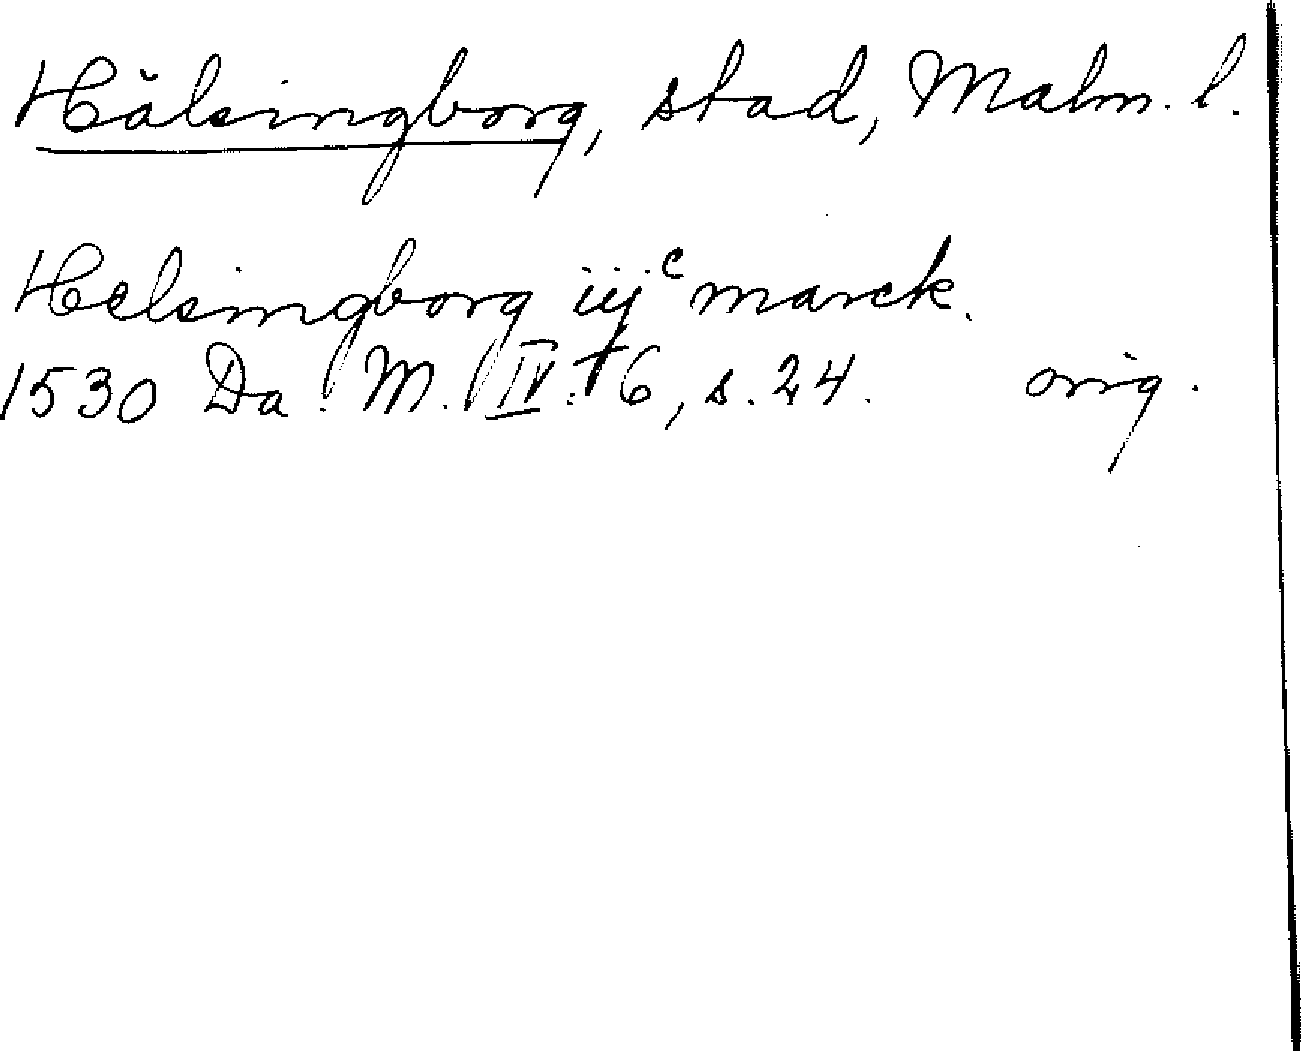 Hälsingborg, stad, Malm. l.
Helsingborg iijᶜ marck.
1530 Da. M. IV: 6, s. 24. orig.